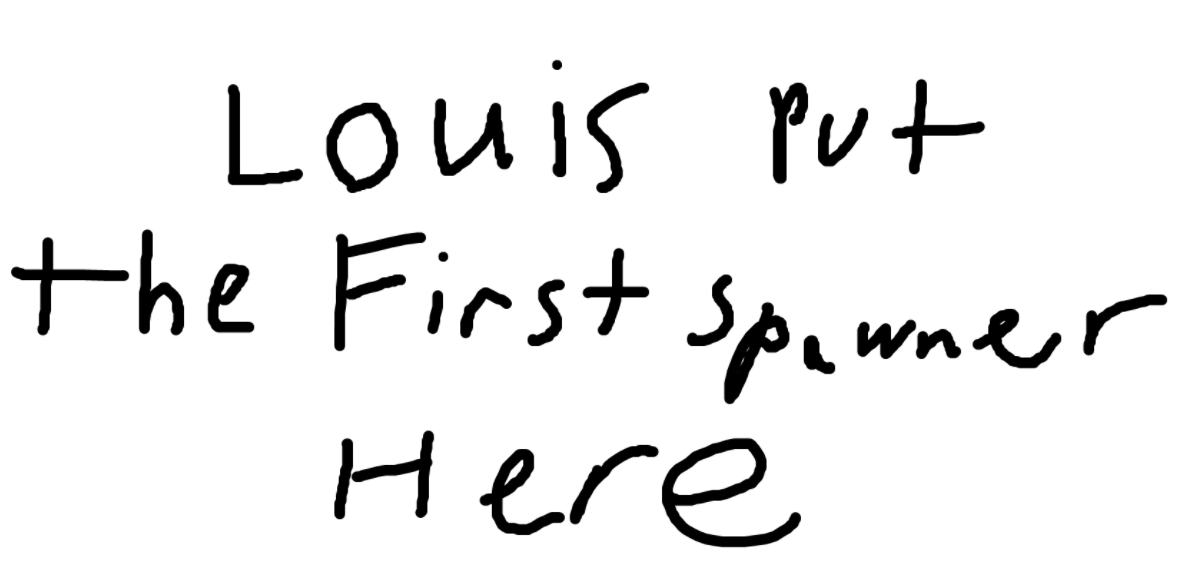 Louis put
the First spawner
Here